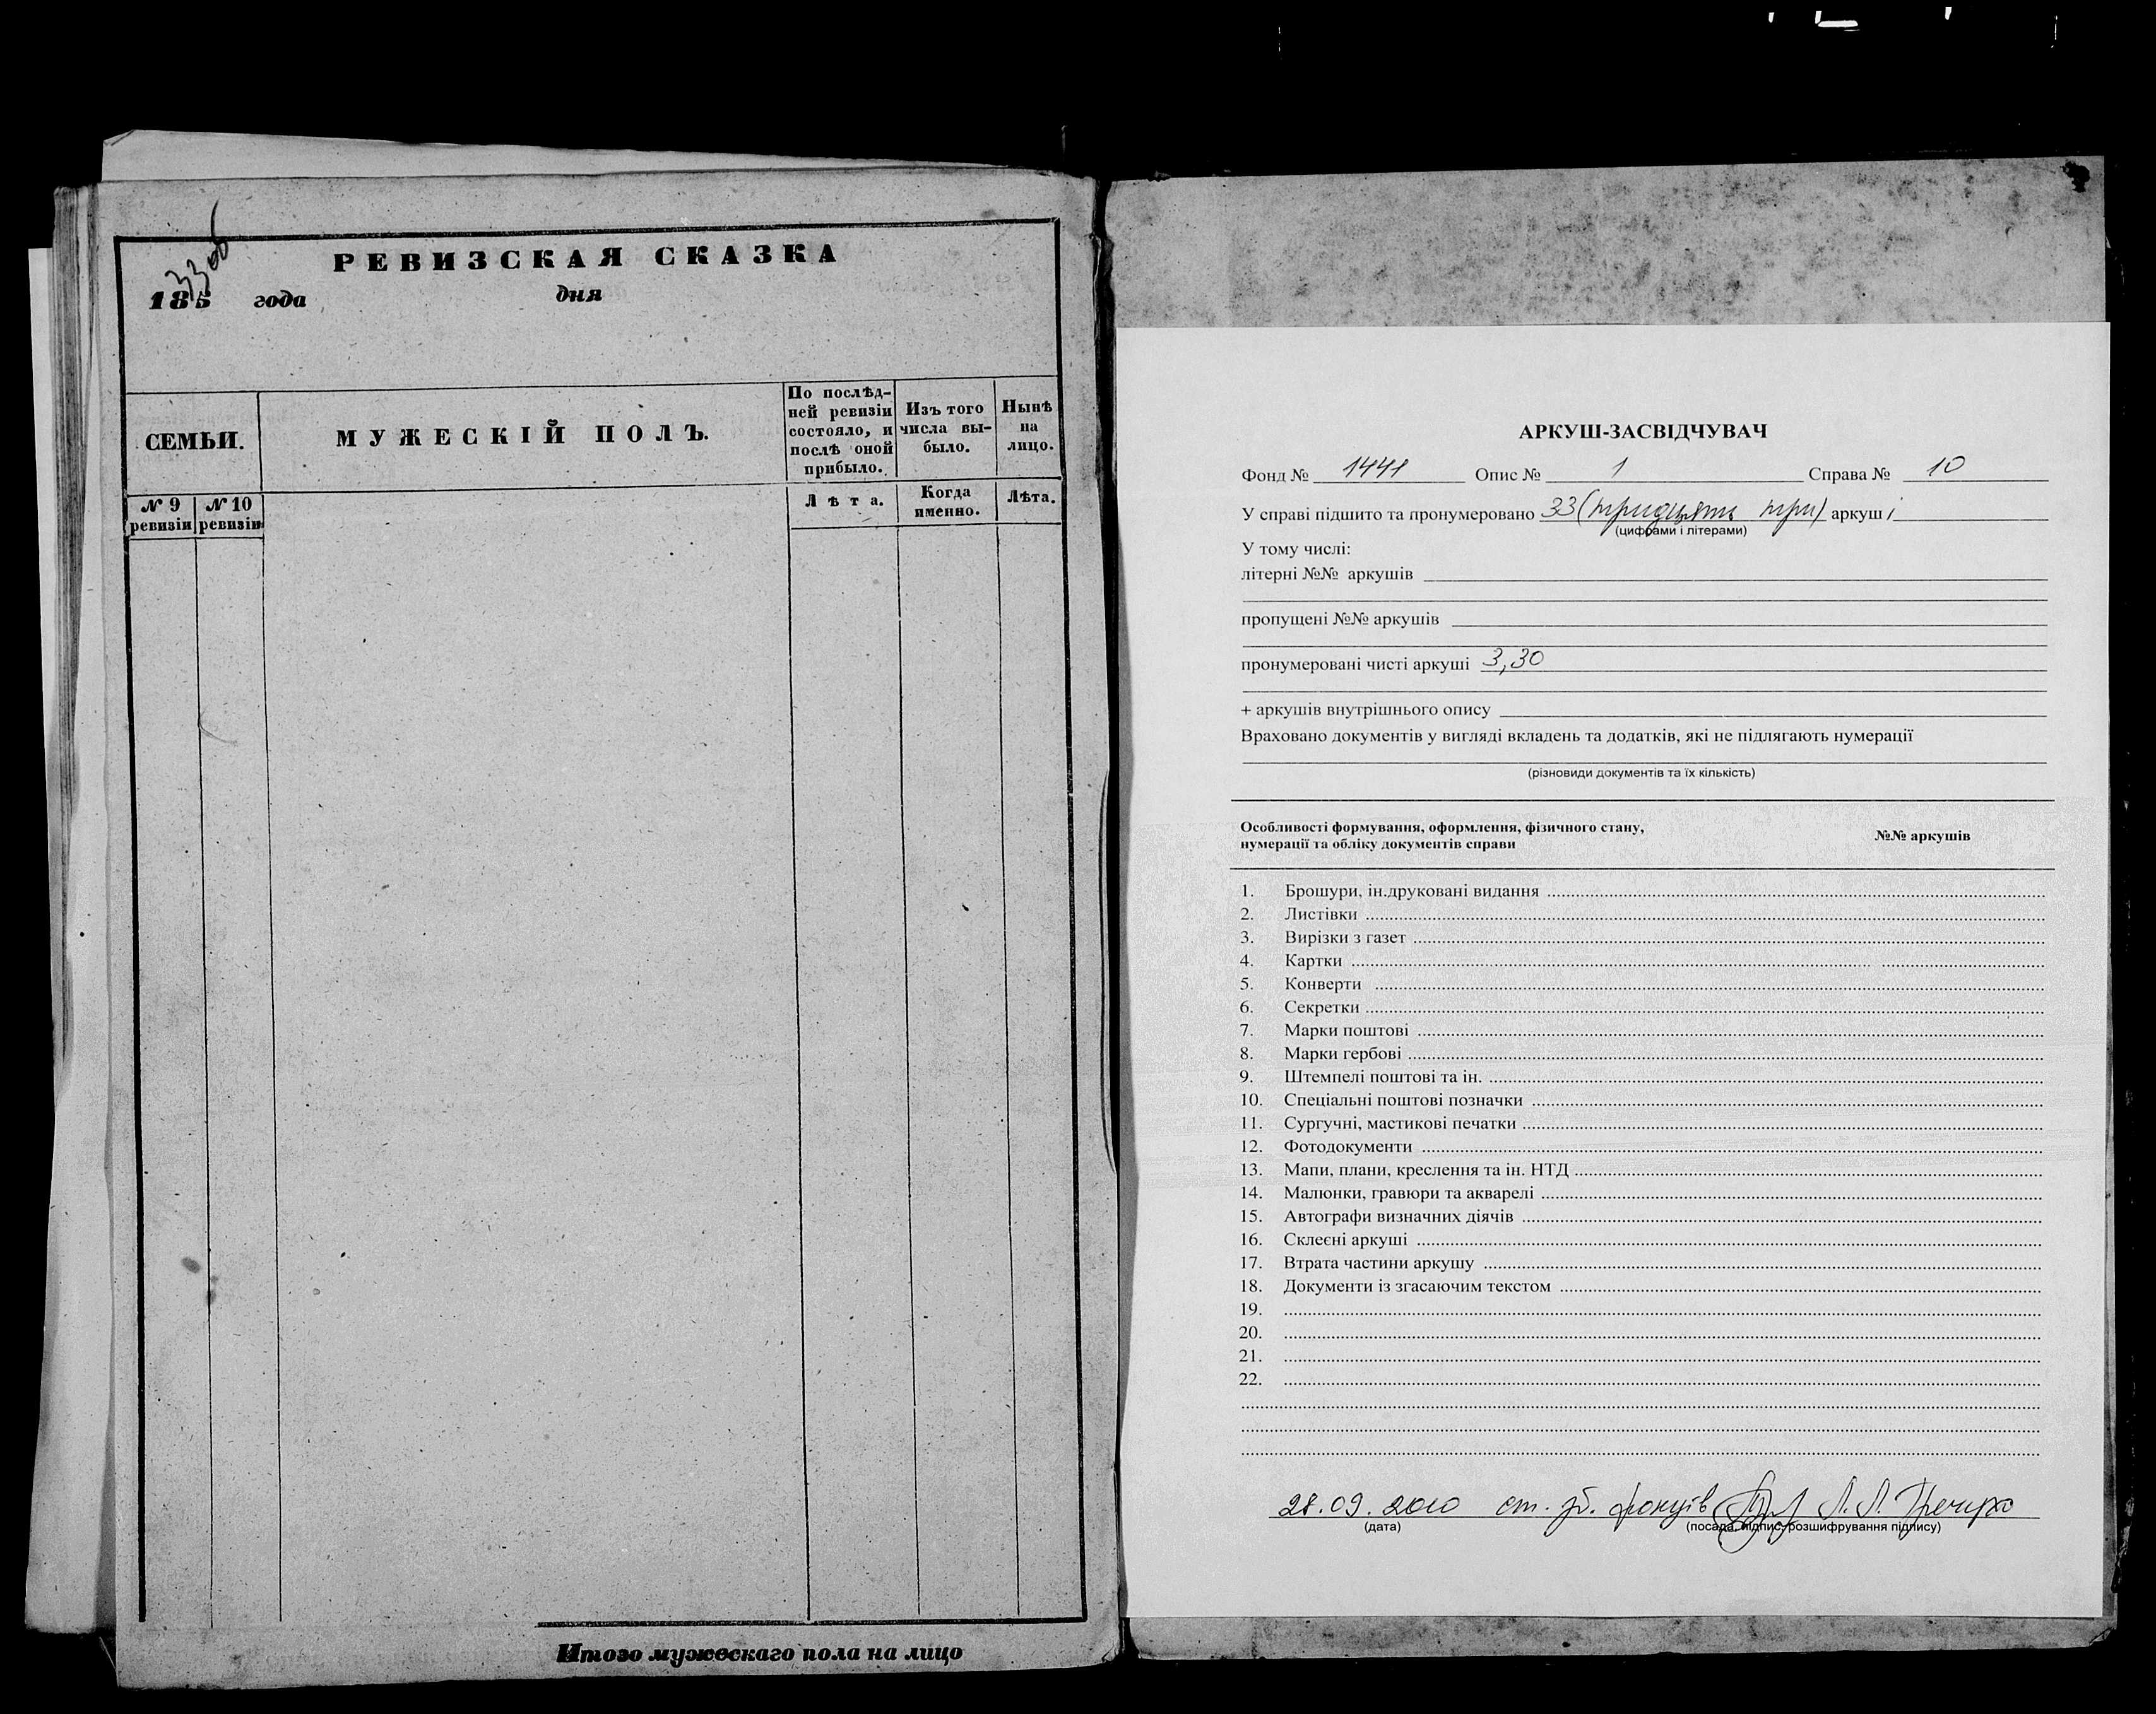 33об
РЕВИЗСКАЯ СКАЗКА
185 года дня
СЕМЬИ.
МУЖЕСКІЙ ПОЛЪ.
По послѣд-
ней ревизіи
состояло, и
послѣ оной
прибыло.
Изъ того
числа вы-
было.
Нынѣ
на
лицо.
№ 9
ревизіи
№ 10
ревизіи
Лѣта.
Когда
именно.
Лѣта.
Итого мужескаго пола на лицо
АРКУШ-ЗАСВІДЧУВАЧ
Фонд № 1441 Опис № 1 Справа № 10
У справі підшито та пронумеровано 33 (тридцять три) аркуші
(цифрами і літерами)
У тому числі:
літерні №№ аркушів
пропущені №№ аркушів
пронумеровані чисті аркуші 3,30
+ аркушів внутрішнього опису
Враховано документів у вигляді вкладень та додатків, які не підлягають нумерації
(різновиди документів та їх кількість)
Особливості формування, оформлення, фізичного стану,
нумерації та обліку документів справи
№№ аркушів
1. Брошури, ін.друковані видання
2. Листівки
3. Вирізки з газет
4. Картки
5. Конверти
6. Секретки
7. Марки поштові
8. Марки гербові
9. Штемпелі поштові та ін.
10. Спеціальні поштові позначки
11. Сургучні, мастикові печатки
12. Фотодокументи
13. Мапи, плани, креслення та ін. НТД
14. Малюнки, гравюри та акварелі
15. Автографи визначних діячів
16. Склеєні аркуші
17. Втрата частини аркушу
18. Документи із згасаючим текстом
19.
20.
21.
22.
28.09.2010 ст. зб. фондів Л.Л.
(дата) (посада, підпис, розшифрування підпису)